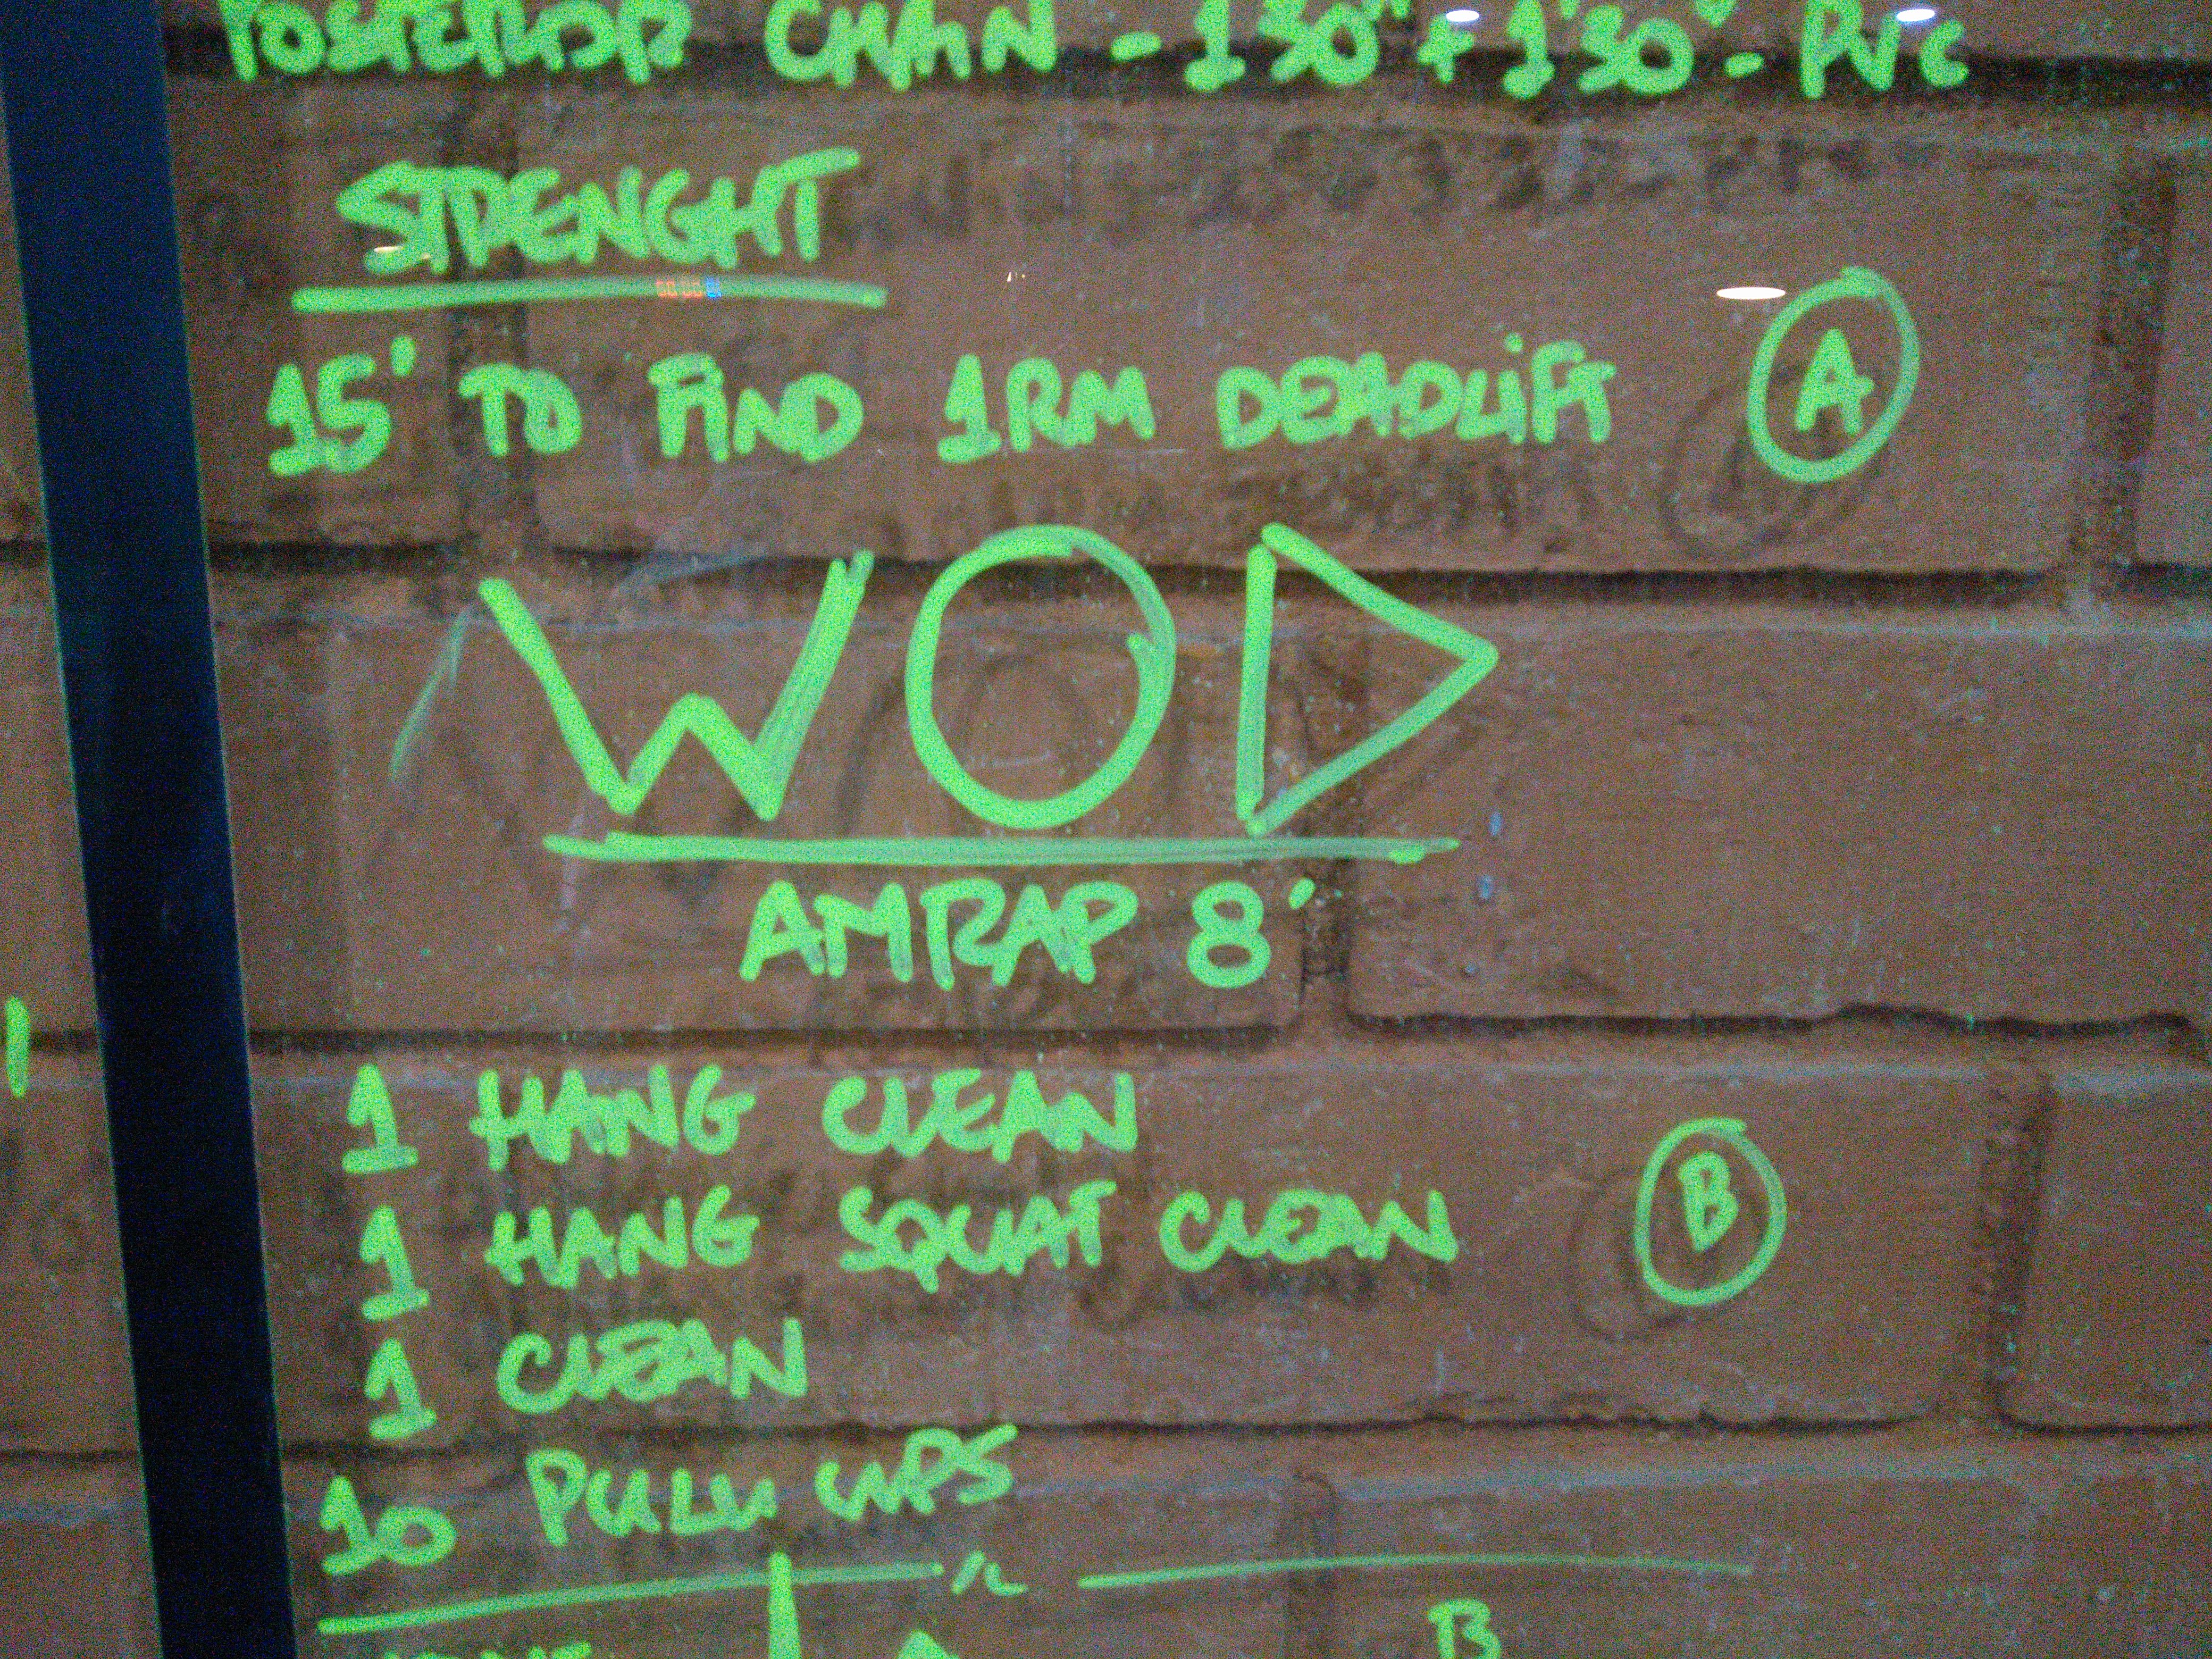 POSTERIOR CHAIN - 1'30" + 1'30" - PVC
STRENGHT
15' TO FIND 1RM DEADLIFT A
WOD
AMRAP 8'
1 HANG CLEAN
1 HANG SQUAT CLEAN B
1 CLEAN
10 PULL UPS
B